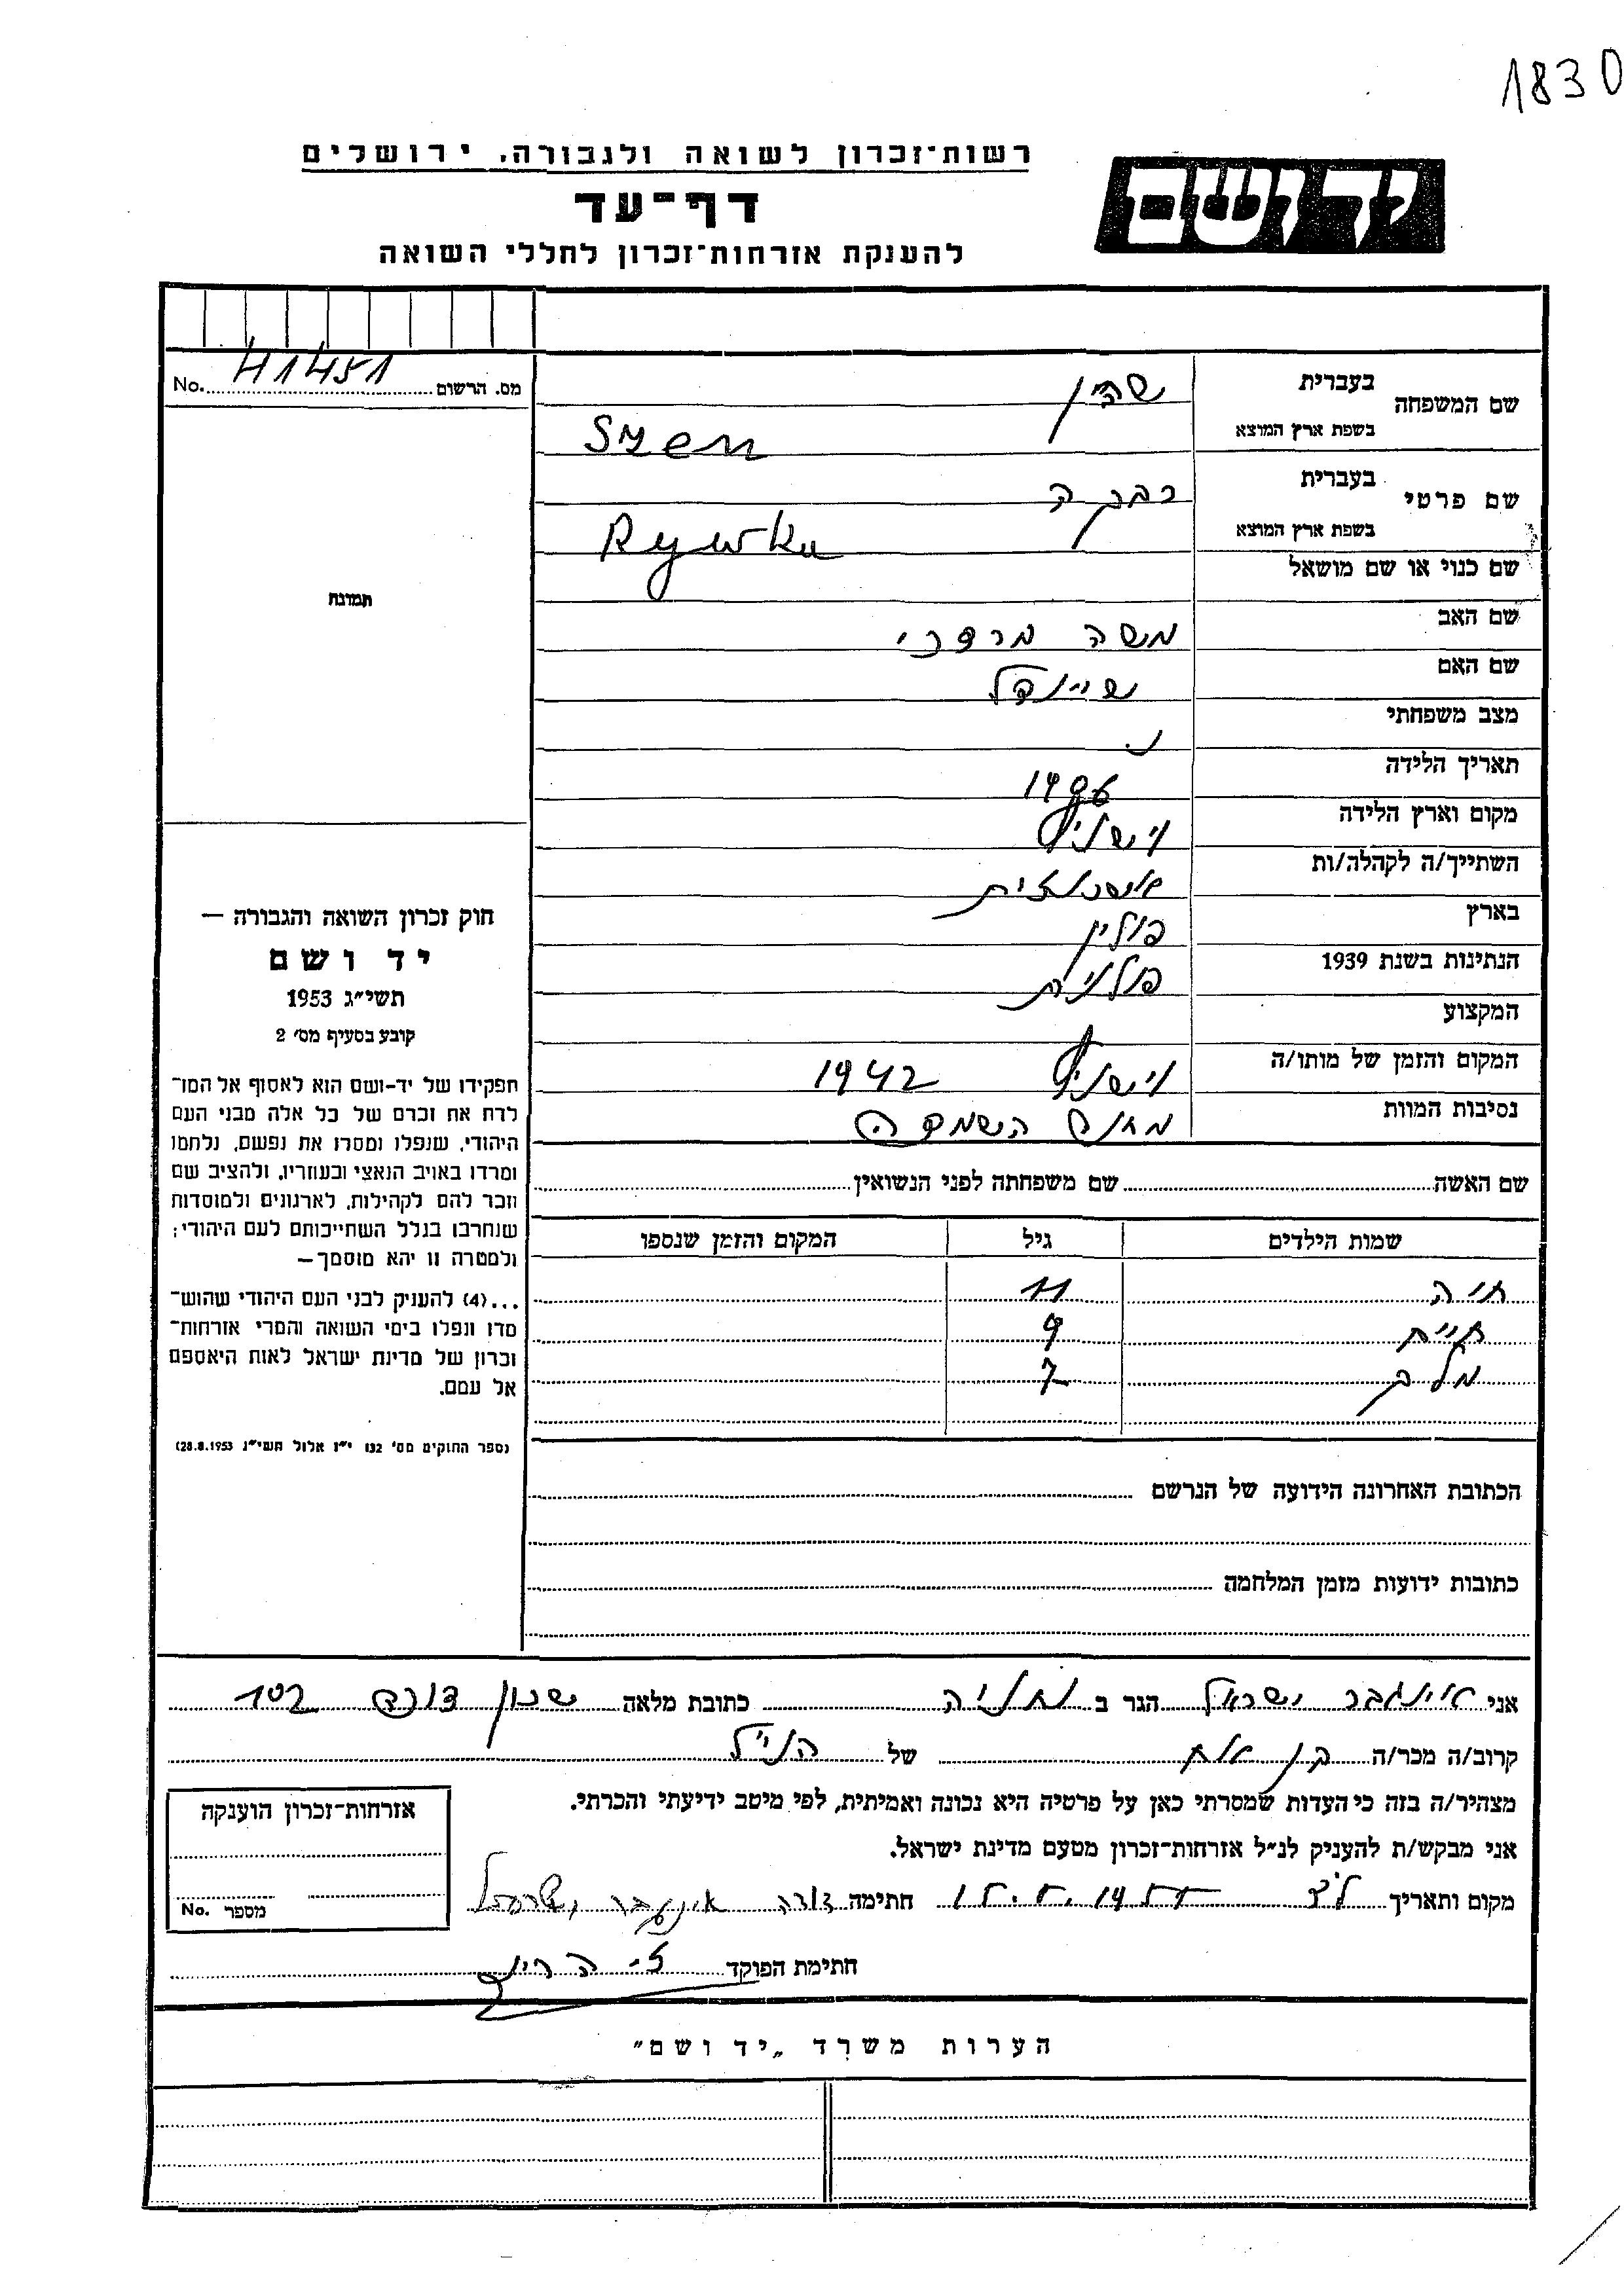 1830
רשות־זכרון לשואה ולגבורה, ירושלים
יד ושם
דף־עד
להענקת אזרחות־זכרון לחללי השואה
מס. הרשום 41451 No.
שם המשפחה
בעברית שהין
בשפת ארץ המוצא Szen
שם פרטי
בעברית רבקה
בשפת ארץ המוצא Rywka
שם כנוי או שם מושאל
תמונה
שם האב משה מרדכי
שם האם שיינדל
מצב משפחתי נ.
תאריך הלידה
מקום וארץ הלידה
השתייך/ה לקהלה/ות
בארץ פולין
הנתינות בשנת 1939 פולנית
המקצוע
המקום והזמן של מותו/ה 1942
נסיבות המוות מחנה השמדה
שם האשה שם משפחתה לפני הנשואין
שמות הילדים גיל המקום והזמן שנספו
חוה 11
חיית 9
מלכ 7
הכתובת האחרונה הידועה של הנרשם
כתובות ידועות מזמן המלחמה
חוק זכרון השואה והגבורה —
יד ושם
תשי״ג 1953
קובע בסעיף מס׳ 2
תפקידו של יד-ושם הוא לאסוף אל המו־
לדת את זכרם של כל אלה מבני העם
היהודי, שנפלו ומסרו את נפשם, נלחמו
ומרדו באויב הנאצי ובעוזריו, ולהציב שם
וזכר להם לקהילות, לארגונים ולמוסדות
שנחרבו בגלל השתייכותם לעם היהודי;
ולמטרה זו יהא מוסמך—
...(4) להעניק לבני העם היהודי שהוש־
מדו ונפלו בימי השואה והמרי אזרחות־
זכרון של מדינת ישראל לאות היאספם
אל עמם.
(ספר החוקים מס׳ 132 י״ז אלול תשי״ג 28.8.1953)
אני אינגבר ישראל הגר ב נתניה כתובת מלאה שכון דורה 102
קרוב/ה מכר/ה בן אח של הנ״ל
מצהיר/ה בזה כי העדות שמסרתי כאן על פרטיה היא נכונה ואמיתית, לפי מיטב ידיעתי והכרתי.
אני מבקש/ת להעניק לנ״ל אזרחות־זכרון מטעם מדינת ישראל.
מקום ותאריך חתימה דורה אינגבר ישראל
חתימת הפוקד
אזרחות־זכרון הוענקה
מספר No.
הערות משרד „יד ושם״